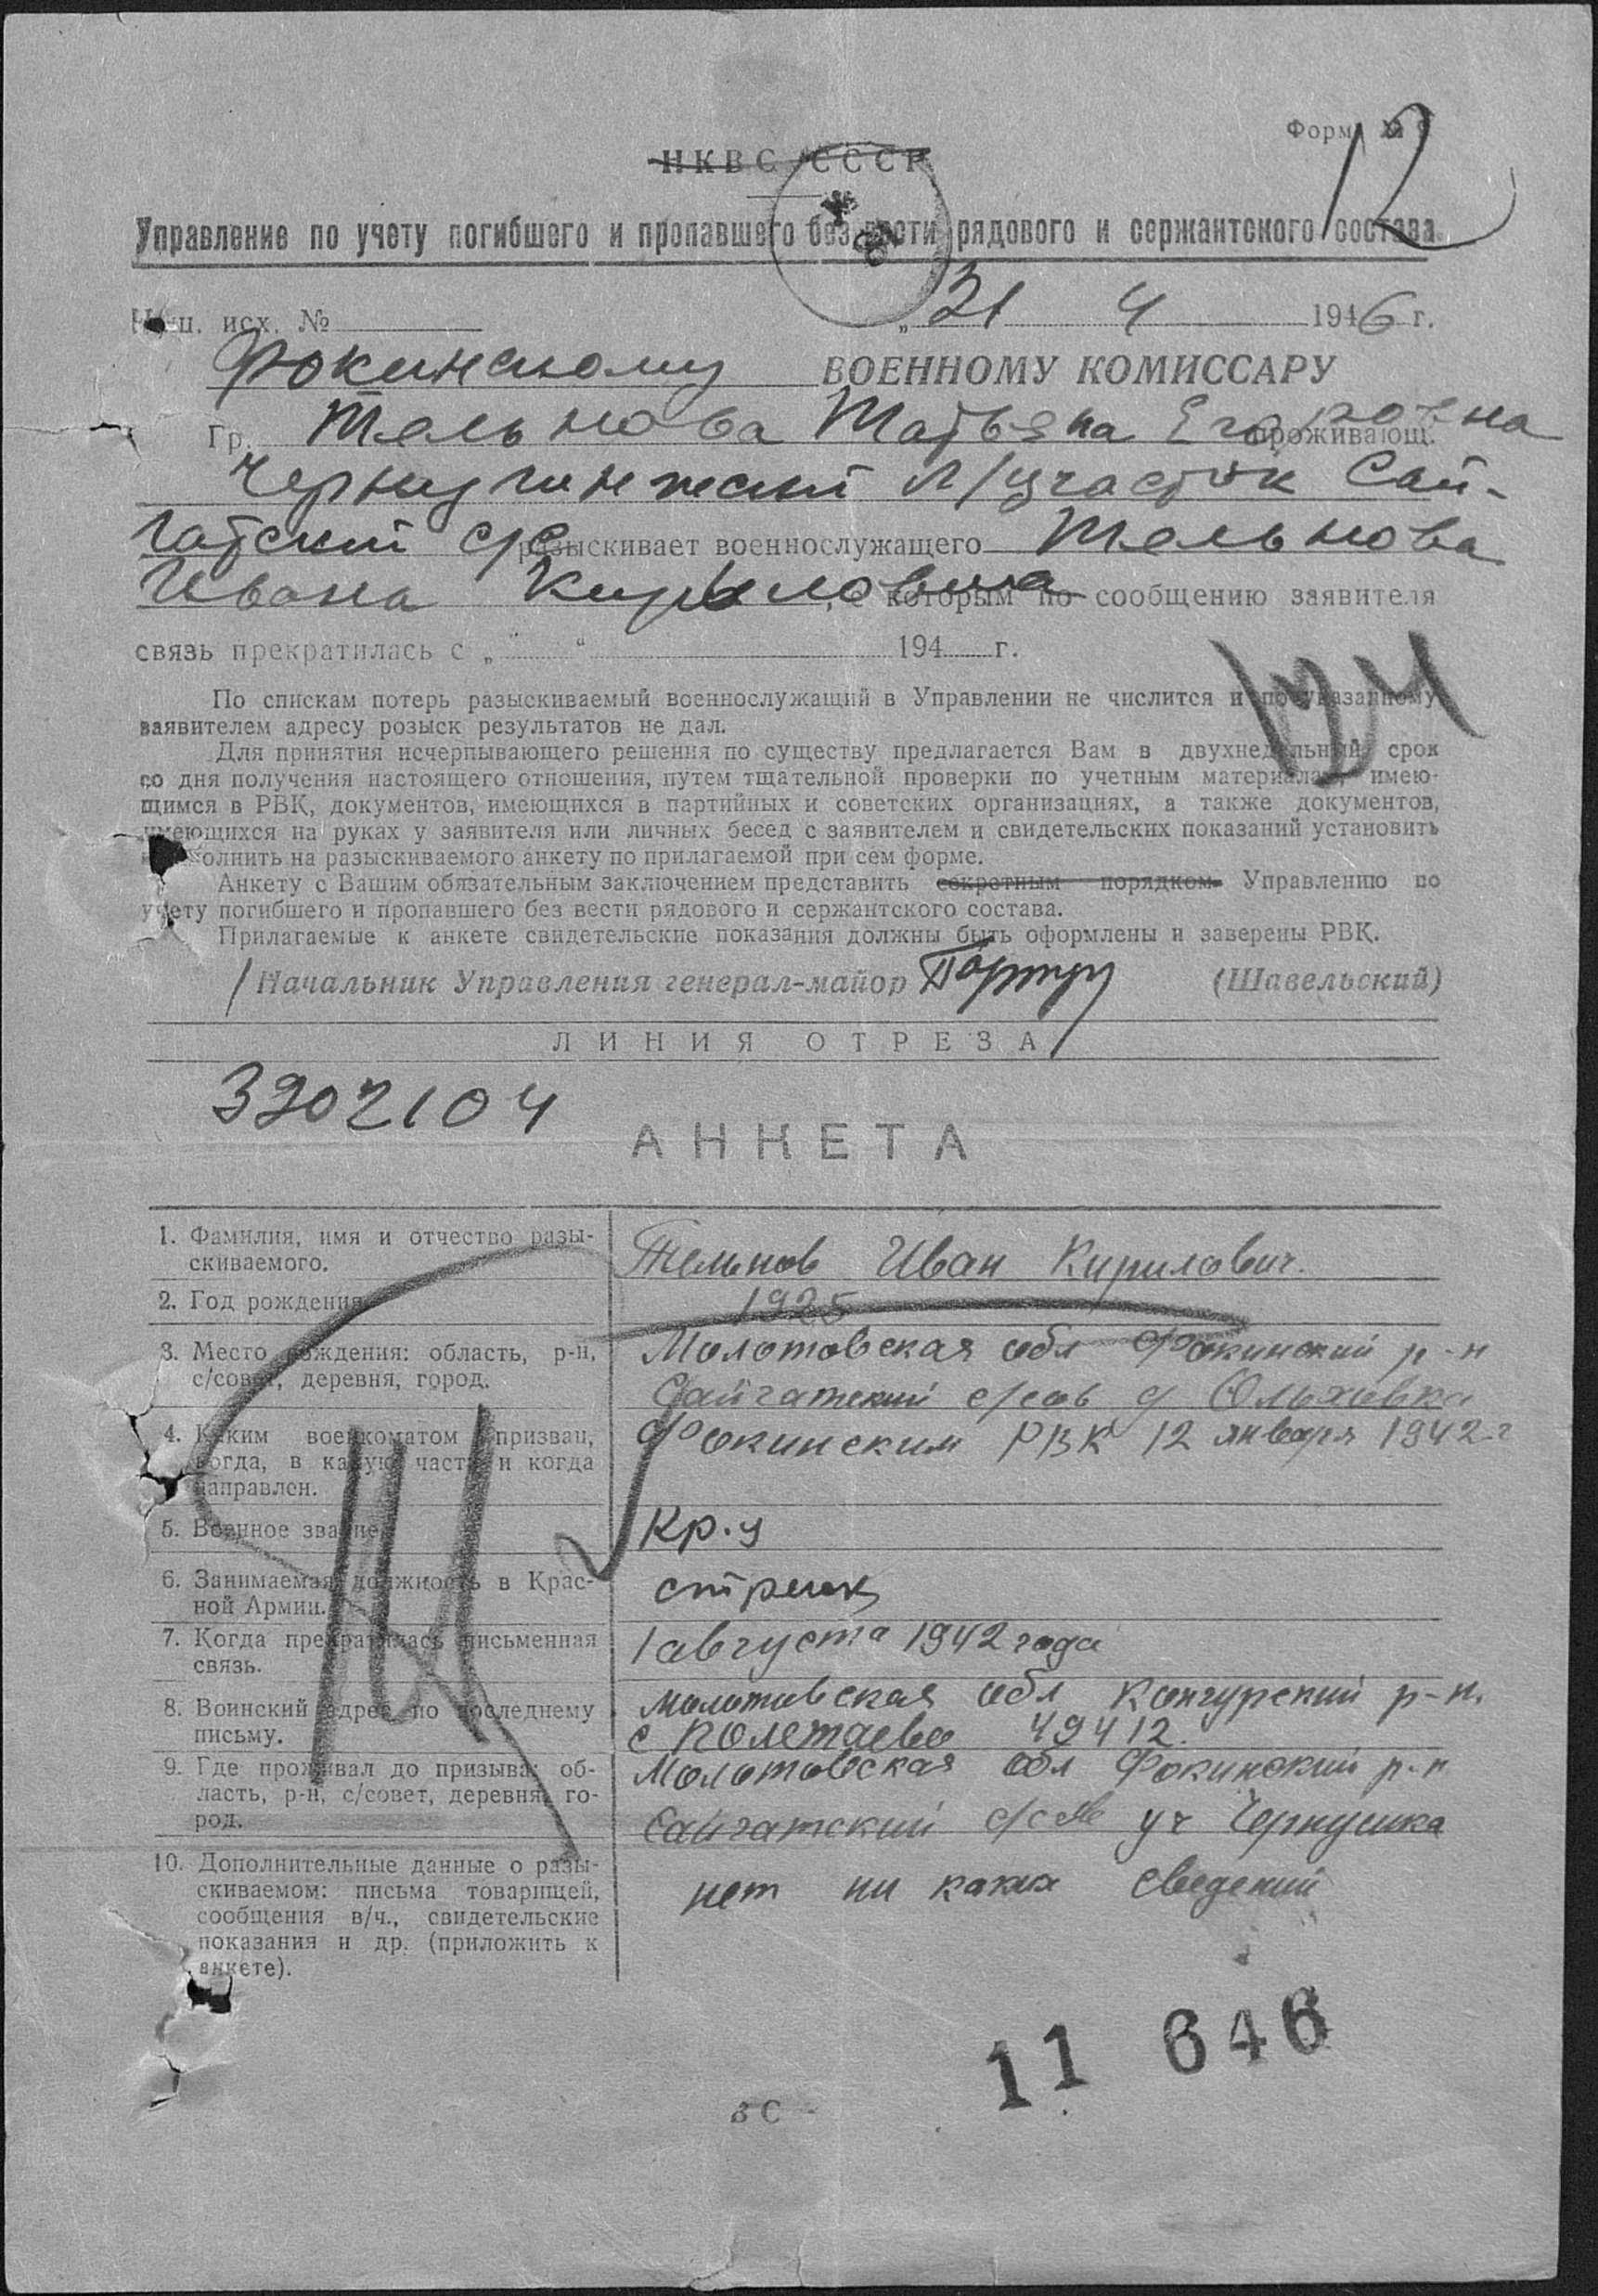 Форма № 9
12
НКВС СССР
Управление по учету погибшего и пропавшего без вести рядового и сержантского состава
Наш. исх. № „31 4 1946 г.
Фокинскому ВОЕННОМУ КОМИССАРУ
Гр. Тельнова Татьяна Егоровна проживающ.
л/участок Сай-
гатский с/с разыскивает военнослужащего Тельнова
Ивана Кириловича, с которым по сообщению заявителя
связь прекратилась с „ “ 194 г.
124
По спискам потерь разыскиваемый военнослужащий в Управлении не числится и по указанному
заявителем адресу розыск результатов не дал.
Для принятия исчерпывающего решения по существу предлагается Вам в двухнедельный срок
со дня получения настоящего отношения, путем тщательной проверки по учетным материалам, имею-
щимся в РВК, документов, имеющихся в партийных и советских организациях, а также документов,
имеющихся на руках у заявителя или личных бесед с заявителем и свидетельских показаний установить
и заполнить на разыскиваемого анкету по прилагаемой при сем форме.
Анкету с Вашим обязательным заключением представить секретным порядком Управлению по
учету погибшего и пропавшего без вести рядового и сержантского состава.
Прилагаемые к анкете свидетельские показания должны быть оформлены и заверены РВК.
Начальник Управления генерал-майор (Шавельский)
ЛИНИЯ ОТРЕЗА
3202104
АНКЕТА
1. Фамилия, имя и отчество разы-
скиваемого.
Тельнов Иван Кирилович.
2. Год рождения
1925
3. Место рождения: область, р-н,
с/совет, деревня, город.
Молотовская обл Фокинский р-н
Сайгатский с/сов д Ольховка
4. Каким военкоматом призван,
когда, в какую часть и когда
направлен.
Фокинским РВК 12 января 1942 г
5. Военное звание
Кр.у
6. Занимаемая должность в Крас-
ной Армии.
стрелк
7. Когда прекратилась письменная
связь.
1 августа 1942 года
8. Воинский адрес по последнему
письму.
Молотовская обл Конгурский р-н.
с Полетаево 49412.
9. Где проживал до призыва: об-
ласть, р-н, с/совет, деревня, го-
род.
Молотовская обл Фокинский р-н
Сайгатский с/сов уч Чернушка
10. Дополнительные данные о разы-
скиваемом: письма товарищей,
сообщения в/ч., свидетельские
показания и др. (приложить к
анкете).
нет ни каких сведений
11 646